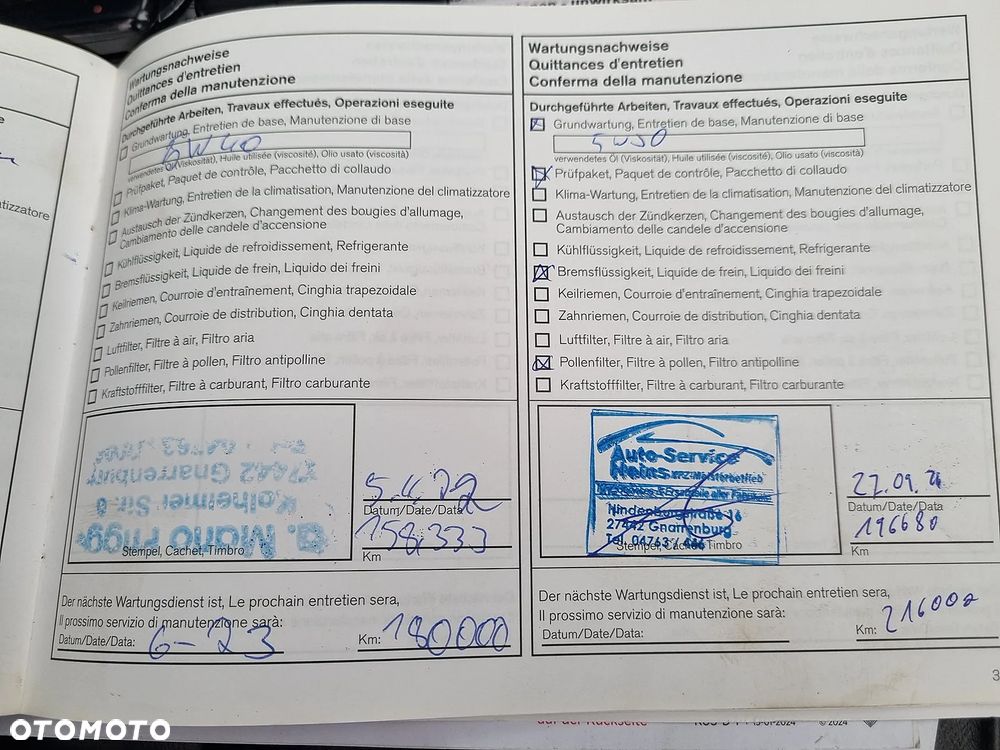 Wartungsnachweise
Quittances d'entretien
Conferma della manutenzione
Durchgeführte Arbeiten, Travaux effectués, Operazioni eseguite
Grundwartung, Entretien de base, Manutenzione di base
5W40
verwendetes Öl (Viskosität), Huile utilisée (viscosité), Olio usato (viscosità)
Prüfpaket, Paquet de contrôle, Pacchetto di collaudo
Klima-Wartung, Entretien de la climatisation, Manutenzione del climatizzatore
Austausch der Zündkerzen, Changement des bougies d'allumage,
Cambiamento delle candele d'accensione
Kühlflüssigkeit, Liquide de refroidissement, Refrigerante
Bremsflüssigkeit, Liquide de frein, Liquido dei freini
Keilriemen, Courroie d'entraînement, Cinghia trapezoidale
Zahnriemen, Courroie de distribution, Cinghia dentata
Luftfilter, Filtre à air, Filtro aria
Pollenfilter, Filtre à pollen, Filtro antipolline
Kraftstofffilter, Filtre à carburant, Filtro carburante
27442 Gnarrenburg
Kolheimer Str. 8
Stempel, Cachet, Timbro
5.4.22
Datum/Date/Data
158.333
Km
Der nächste Wartungsdienst ist, Le prochain entretien sera,
Il prossimo servizio di manutenzione sarà:
Datum/Date/Data: 6-23
Km: 180000
Wartungsnachweise
Quittances d'entretien
Conferma della manutenzione
Durchgeführte Arbeiten, Travaux effectués, Operazioni eseguite
Grundwartung, Entretien de base, Manutenzione di base
5W30
verwendetes Öl (Viskosität), Huile utilisée (viscosité), Olio usato (viscosità)
Prüfpaket, Paquet de contrôle, Pacchetto di collaudo
Klima-Wartung, Entretien de la climatisation, Manutenzione del climatizzatore
Austausch der Zündkerzen, Changement des bougies d'allumage,
Cambiamento delle candele d'accensione
Kühlflüssigkeit, Liquide de refroidissement, Refrigerante
Bremsflüssigkeit, Liquide de frein, Liquido dei freini
Keilriemen, Courroie d'entraînement, Cinghia trapezoidale
Zahnriemen, Courroie de distribution, Cinghia dentata
Luftfilter, Filtre à air, Filtro aria
Pollenfilter, Filtre à pollen, Filtro antipolline
Kraftstofffilter, Filtre à carburant, Filtro carburante
Auto-Service
Heins KFZ-Meisterbetrieb
Hindenburgstraße 16
27442 Gnarrenburg
Tel. 04763 /
Stempel, Cachet, Timbro
27.09.
Datum/Date/Data
196680
Km
Der nächste Wartungsdienst ist, Le prochain entretien sera,
Il prossimo servizio di manutenzione sarà:
Datum/Date/Data:
Km: 216000
3
atizzatore
auf der Rückseite
© 2024
OTOMOTO